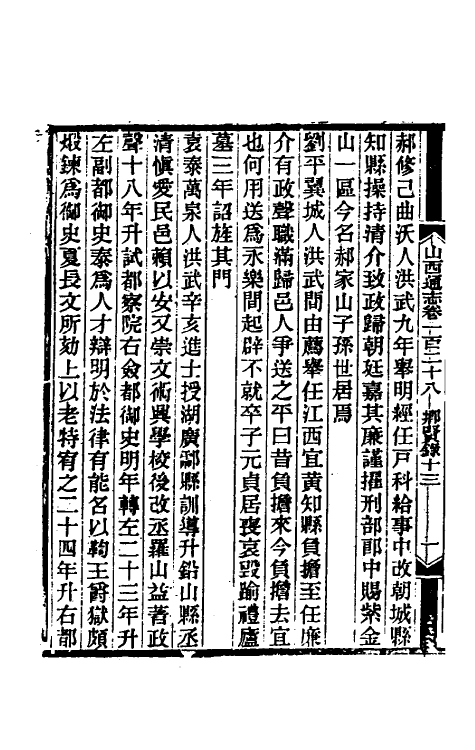 山西通志卷一百三十八 鄉賢錄十三 一
郝修己曲沃人洪武九年舉明經任戸科給事中改朝城縣
知縣操持清介致政歸朝廷嘉其廉謹擢刑部郎中賜紫金
山一區今名郝家山子孫世居焉
劉平翼城人洪武間由薦舉任江西宜黄知縣負擔至任廉
介有政聲職滿歸邑人爭送之平曰昔負擔來今負擔去宜
也何用送爲永樂間起辟不就卒子元貞居喪哀毀踰禮廬
墓三年詔旌其門
袁泰萬泉人洪武辛亥進士授湖廣酃縣訓導升鉛山縣丞
清慎愛民邑賴以安又崇文術興學校後改丞羅山益著政
聲十八年升試都察院右僉都御史明年轉左二十三年升
左副都御史泰爲人才辯明於法律有能名以鞫王爵獄頗
煅鍊爲御史夏長文所劾上以老特宥之二十四年升右都